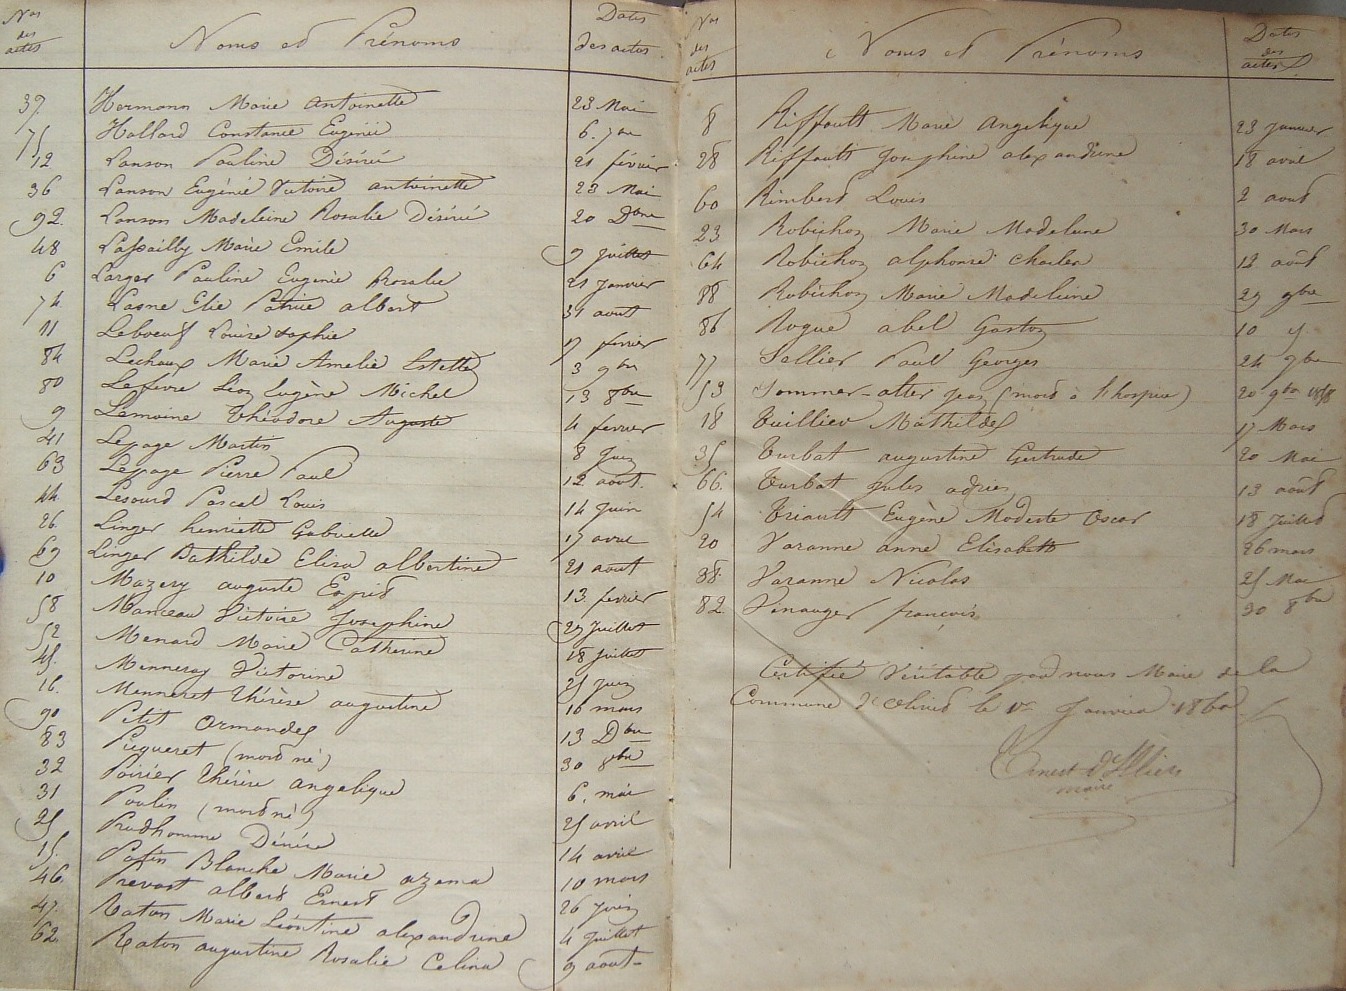 Nos des actes Noms et Prénoms Dates des actes
37. Hermann Marie Antoinette 23 Mai
75 Hallard Constance Eugénie 6. 7bre
12 Lanson Pauline Désirée 21 février
36 Lanson Eugénie Victoire antoinette 23 Mai
92. Lanson Madeleine Rosalie Désirée 20 Dbre
48 Lapailly Marie Emile 9 juillet
6 Larger Pauline Eugenie Rosalie 21 janvier
74 Lasne Elie Patrice albert 31 aout
11 Leboeuf Louise Sophie 17 fevrier
84 Lechaux Marie Amelie Estelle 3 9bre
80 Lefevre Léon Eugène Michel 13 8bre
9 Lemoine Théodore Auguste 4 fevrier
41 Lepage Martin 8 Juin
63 Lepage Pierre Paul 12 aout.
44. Lesourd Pascal Louis 14 Juin
26. Linger henriette Gabrielle 17 avril
69 Linger Bathilde Elisa albertine 21 aout
10 Mazery auguste Esprit 13. fevrier
58 Manceau Victoire Josephine 29 Juillet
52 Menard Marie Catherine 18 juillet
45. Menneray Victorine 25 Juin
16. Menneret Thérèse augustine 16 mars
90 Petit Armandes 13 Dbre
83 Piqueret (mort né) 30 8bre
32 Poirier Thérèse angelique 6. mai
31 Poulin (mort né) 25 avril
25 Prudhomme Désirée 14 avril
15. Patin Blanche Marie azema 10 mars
46. Prevost albert Ernest 26 juin
47. Raton Marie Léontine alexandrine 4 Juillet
62. Raton augustine Rosalie Celina 9 aout
Nos des actes Noms et Prénoms Dates des actes
8 Riffault Marie Angelique 23 janvier
28 Riffault Josephine alexandrine 18 avril
60 Rimbert Louis 2 aout
23 Robichon Marie Madeleine 30 Mars
64 Robichon alphonse Charles 12 août
88 Robichon Marie Madeleine 29 9bre
86 Rogue abel Gaston 10 d
77 Sellier Paul Georges 24 7bre
53 Sommer-atter Jean (mort à l'hospice) 20 9bre 1858
18 Tuillier Mathilde 17 Mars
35 Turbat augustine Gertrude 20 Mai
66. Turbat Jules adrien 13 août
54 Triault Eugène Modeste Oscar 18 Juillet
20 Varanne anne Elisabeth 26 mars
38. Varanne Nicolas 25 Mai
82 Venauger françois 30 8bre
Certifié Véritable par nous Maire de la
Commune d'Olivet le 1er Janvier 1860
Ernest d'Illiers
maire